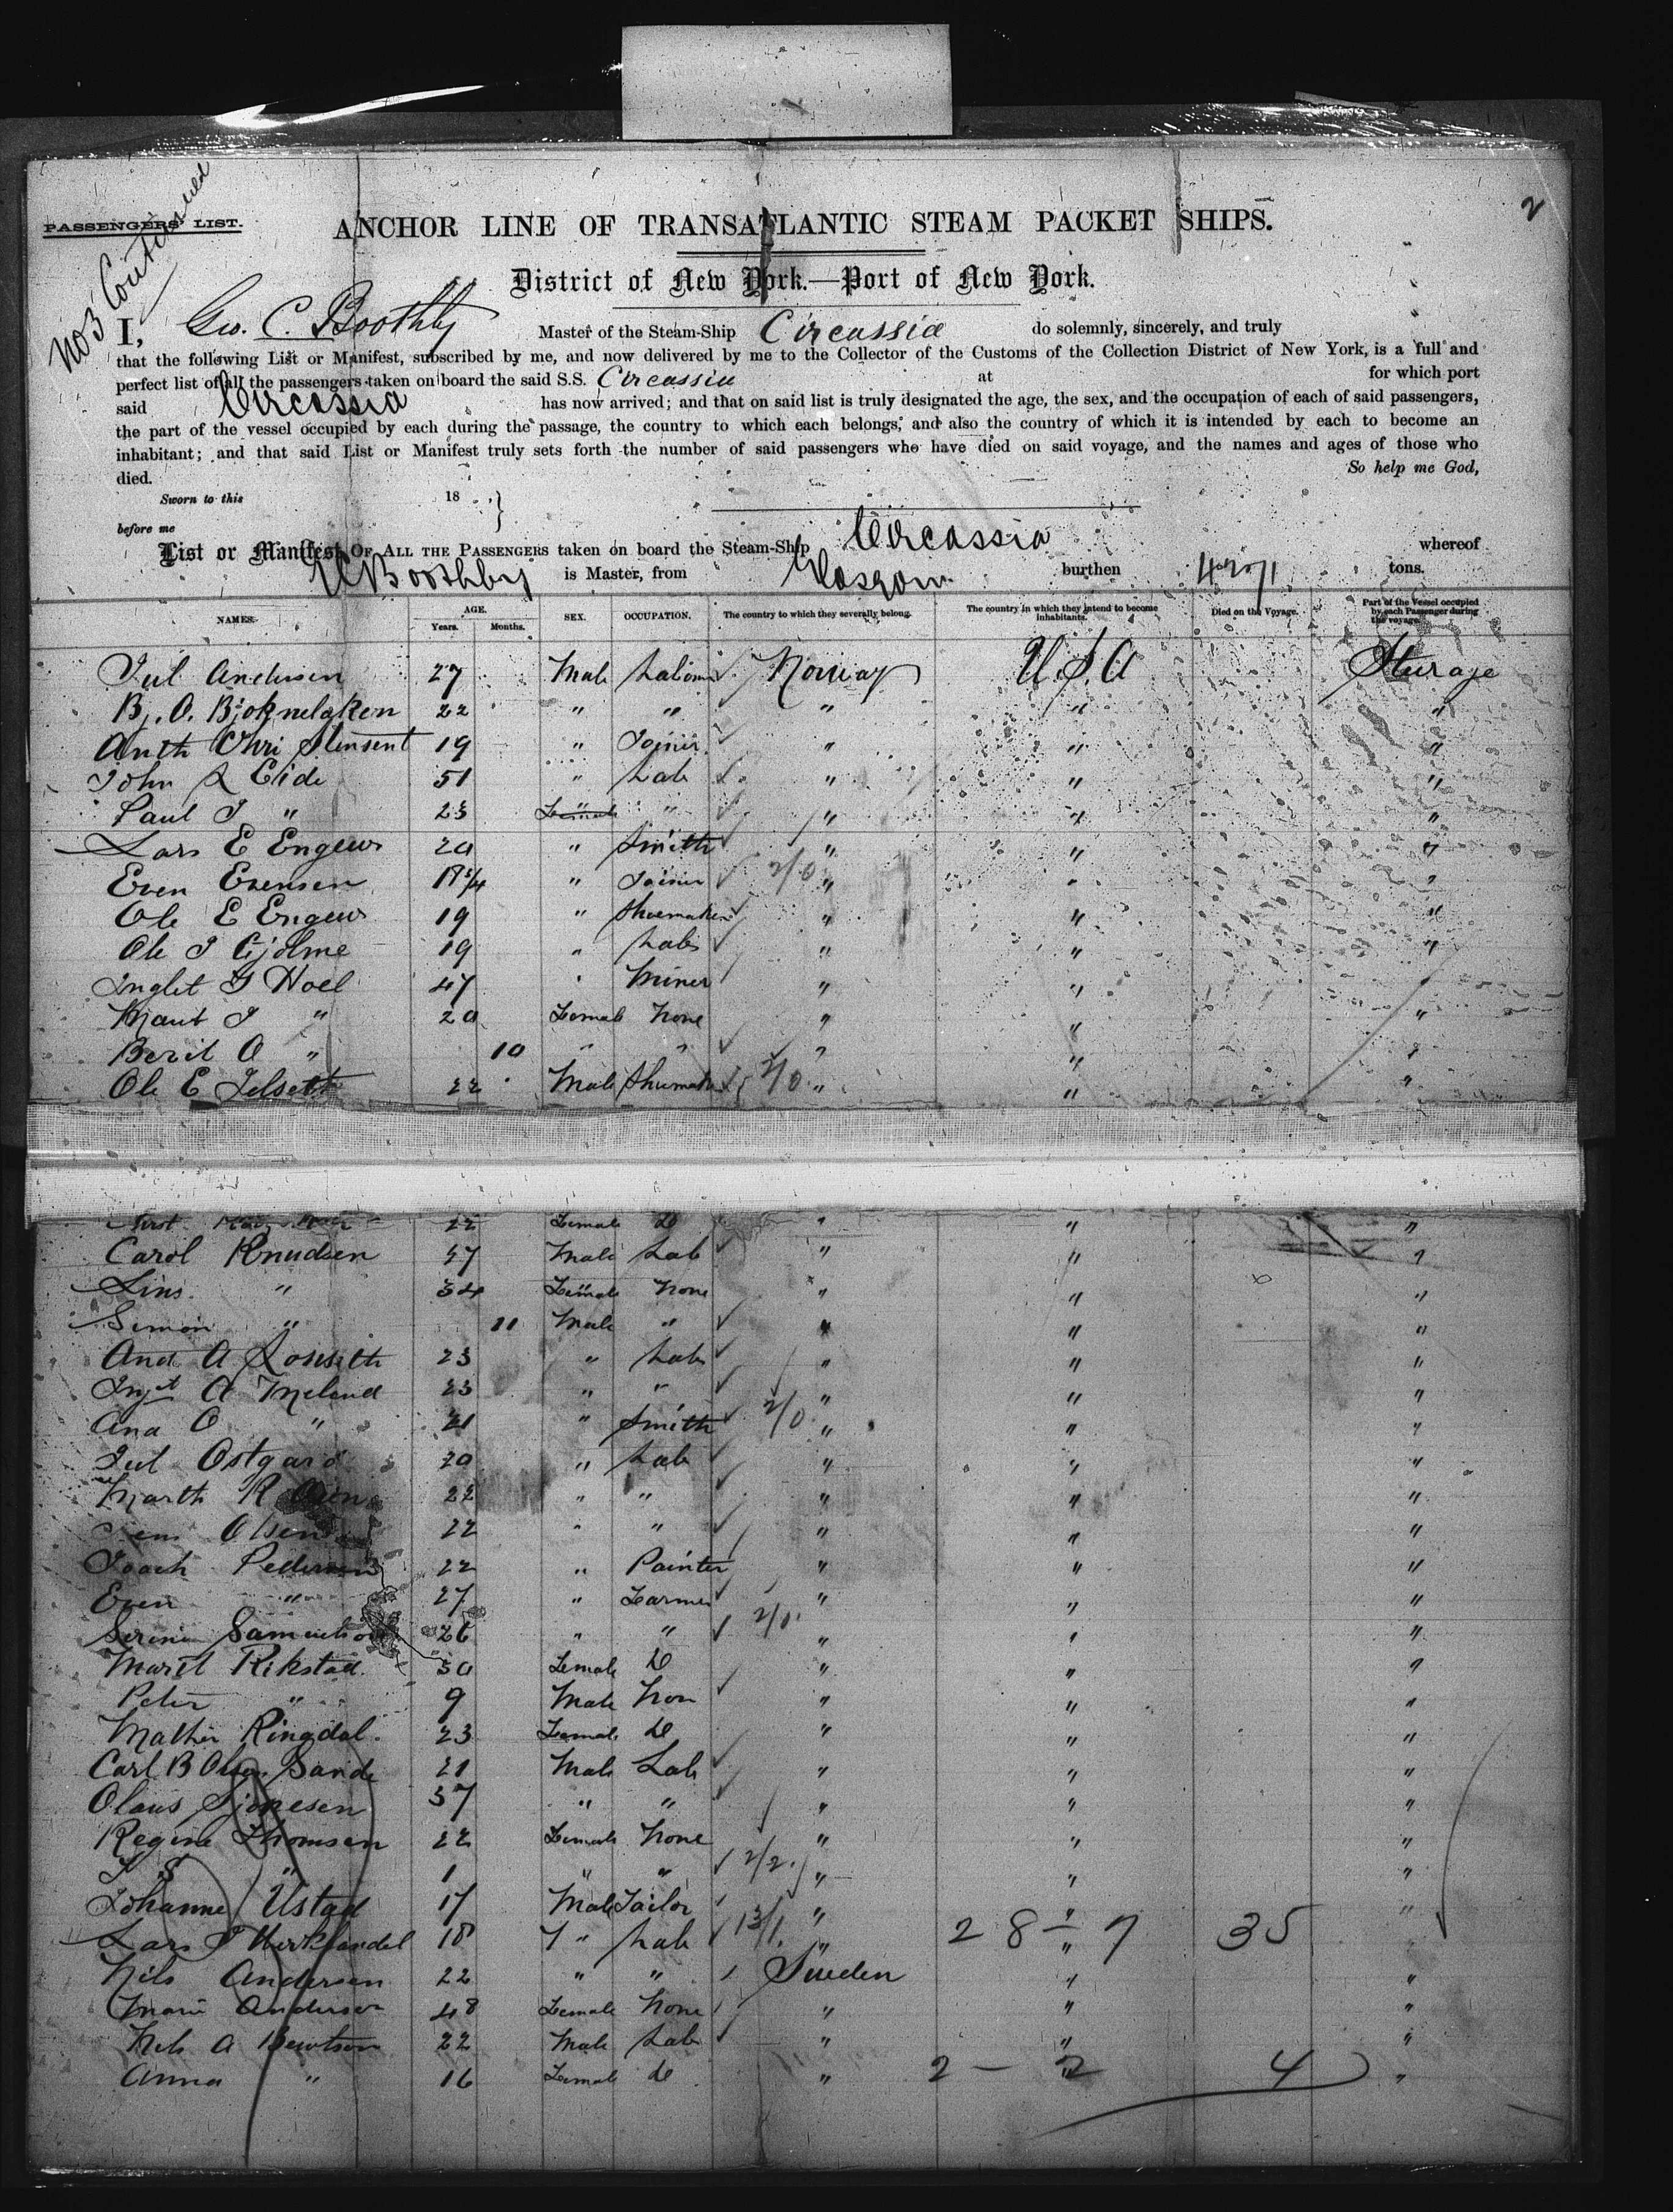 No 3 Continued
2
PASSENGERS' LIST.
ANCHOR LINE OF TRANSATLANTIC STEAM PACKET SHIPS.
District of New York.—Port of New York.
I, Geo. C. Boothby Master of the Steam-Ship Circassia do solemnly, sincerely, and truly
that the following List or Manifest, subscribed by me, and now delivered by me to the Collector of the Customs of the Collection District of New York, is a full and
perfect list of all the passengers taken on board the said S.S. Circassia at for which port
said Circassia has now arrived; and that on said list is truly designated the age, the sex, and the occupation of each of said passengers,
the part of the vessel occupied by each during the passage, the country to which each belongs, and also the country of which it is intended by each to become an
inhabitant; and that said List or Manifest truly sets forth the number of said passengers who have died on said voyage, and the names and ages of those who
died. So help me God,
Sworn to this 18
before me
List or Manifest OF ALL THE PASSENGERS taken on board the Steam-Ship Circassia whereof
Boothby is Master, from Glasgow burthen 4271 tons.
NAMES. AGE. Years. Months. SEX. OCCUPATION. The country to which they severally belong. The country in which they intend to become inhabitants. Died on the Voyage. Part of the Vessel occupied by each Passenger during the voyage.
Jul Andersen 27 Male Norway U.S.A Sturage
22 " " " " "
19 " Joiner " " "
John Eide 51 " Lab " " "
Paul J " 23 " " " " "
Lars E 20 " Smith " " "
Even Evensen 18 3/4 " Joiner 2/0 " " "
Ole E 19 " Shoemaker " " "
Ole J Gjolme 19 " Lab " " "
Hoel 47 " Miner " " "
" 20 Female None " " "
Berit O " 10 " " " " "
Ole E 22 Male 2/0 " " "
22 Female Do " " "
Carol Knudsen 37 Male Lab " " "
" 34 Female None " " "
Simon " 11 Male " " " "
And A 23 " Lab " " "
A Meland 23 " " " " "
Ana O " 21 " Smith 2/0 " " "
Jul Ostgard 20 " Lab " " "
Marth R 22 " " " " "
Olsen 22 " " " " "
Pedersen 22 " Painter " " "
Even " 27 " Farmer " " "
26 " " 2/0 " " "
Marit Rikstad 30 Female Do " " "
Peter " 9 Male Non " " "
Ringdal 23 Female Do " " "
Carl B Olsen Sande 21 Male Lab " " "
Olaus 37 " " " " "
Regine Thomsen 22 Female None " " "
" 1 " " 2/2 " " "
Johanne Ustad 17 Male Tailor " " "
Lars J 18 " Lab 13/1 " 28 - 7 " 35 "
Nils Andersen 22 " " Sweden " "
Marie Anderson 48 Female None " " "
Nils A 22 Male Lab " " "
Anna " 16 Female do " 2 - 2 " 4 "